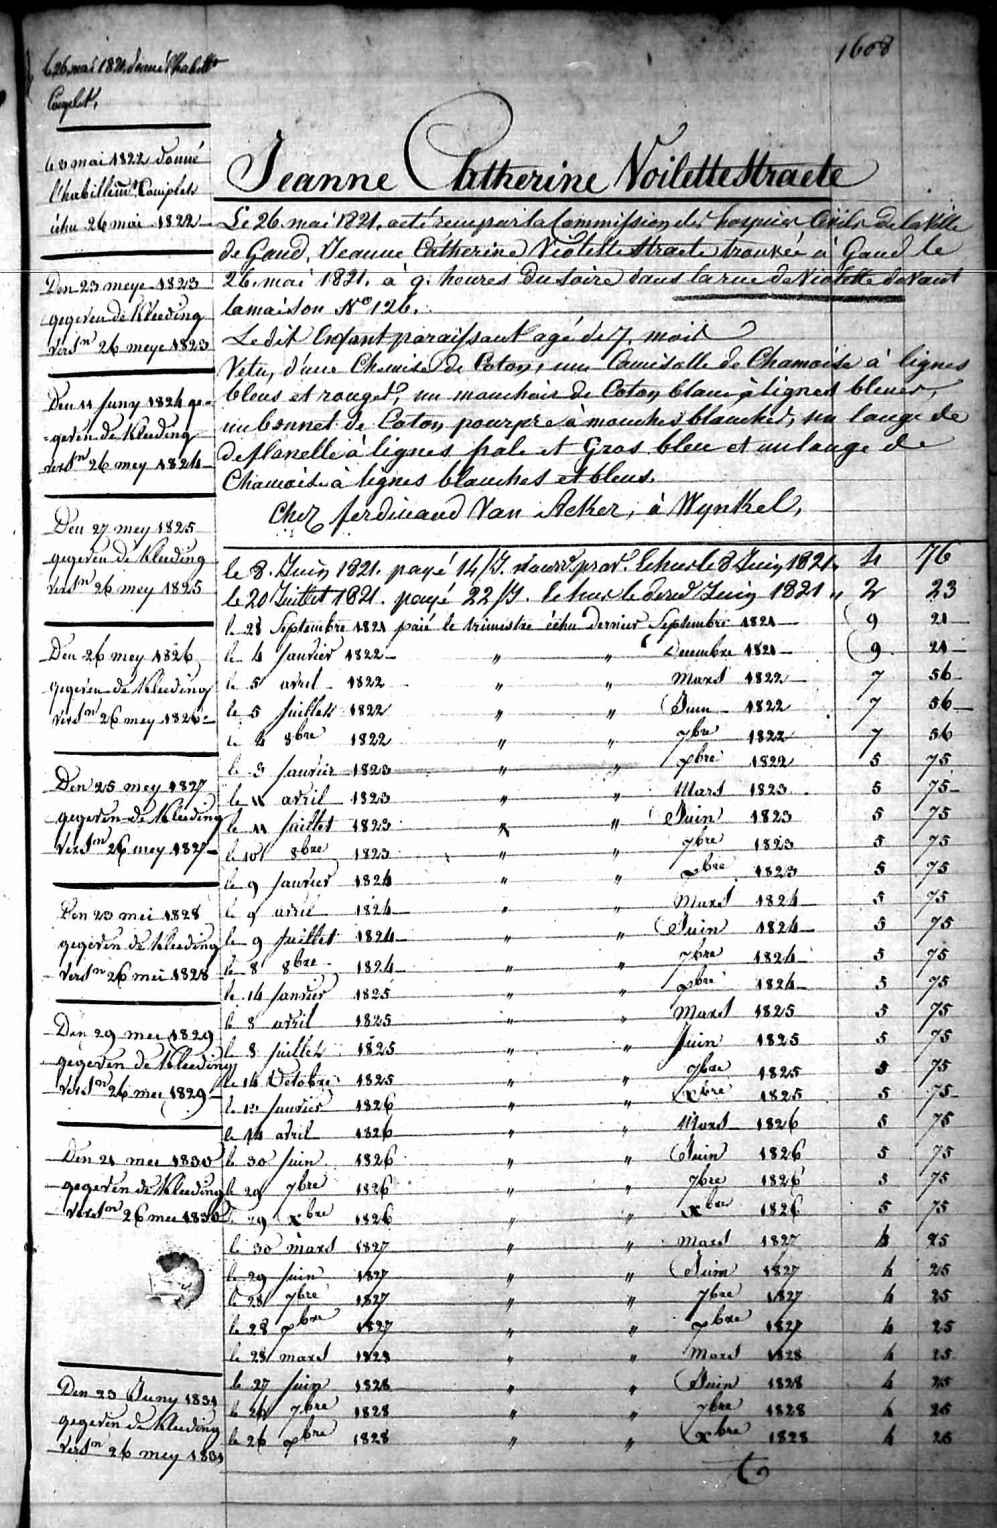 1608
le 26 mai 1821 donné l'habillt
Complet,
le 3 mai 1822 donné
l'habillemt Complet
échu 26 mai 1822
Den 23 meye 1823
gegeven de Kleeding
versn 26 meye 1823
Den 11 Juny 1824 ge-
geven de Kleeding
versn 26 mey 1824
Den 27 mey 1825
gegeven de Kleeding
versn 26 mey 1825
Den 26 mey 1826
gegeven de Kleeding
versn 26 mey 1826
Den 25 mey 1827
gegeven de Kleeding
versn 26 mey 1827
Den 23 mei 1828
gegeven de Kleeding
versn 26 mei 1828
Den 29 mei 1829
gegeven de Kleeding
versn 26 mei 1829
Den 21 mei 1830
gegeven de Kleeding
versn 26 mei 1830
Den 23 Juny 1831
gegeven de Kleeding
versn 26 mey 1831
Jeanne Catherine Voilettestraete
Le 26. mai 1821. acté reçu par la Commission des hospices Civils de la Ville
de Gand, Jeanne Catherine Violettestraete trouvée à Gand le
26. mai 1821. à 9. heures du soire dans la rue de Violette devant
la maison No 126.
Le dit Enfant paraissant agé de 7. mois
Vetu, d'une Chemise de Coton, une Camisolle de Chamoise à lignes
bleus et rouges, un mouchoir de Coton blanc à lignes bleues,
un bonnet de Coton pourpre à mouches blanches, un lange de
de flanelle à lignes pale et Gros bleu et un lange de
Chamoise à lignes blanches et bleus.
Chez ferdinand Van Acker, à Wynkel,
le 8. Juin 1821. payé 14/J. nourr prov. échus le 8 Juin 1821. 4 76
le 20 Juillet 1821. payé 22/J. échus le dered Juin 1821 " 2 23
le 28 Septembre 1821 paié le trimestre échu dernier Septembre 1821 9 21
le 4 Janvier 1822 " " Decembre 1821 9 21
le 5 avril 1822 " " Mars 1822 7 56
le 5 Juillet 1822 " " Juin 1822 7 56
le 4 8bre 1822 " " 7bre 1822 7 56
le 3 Janvier 1823 " " xbre 1822 5 75
le 11 avril 1823 " " Mars 1823 5 75
le 11 Juillet 1823 " " Juin 1823 5 75
le 10 8bre 1823 " " 7bre 1823 5 75
le 9 Janvier 1824 " " xbre 1823 5 75
le 9 avril 1824 " " Mars 1824 5 75
le 9 Juillet 1824 " " Juin 1824 5 75
le 8 8bre 1824 " " 7bre 1824 5 75
le 14 Janvier 1825 " " xbre 1824 5 75
le 8 avril 1825 " " Mars 1825 5 75
le 8 Juillet 1825 " " Juin 1825 5 75
le 14 Octobre 1825 " " 7bre 1825 5 75
le 13 Janvier 1826 " " xbre 1825 5 75
le 14 avril 1826 " " Mars 1826 5 75
le 30 Juin 1826 " " Juin 1826 5 75
le 29 7bre 1826 " " 7bre 1826 5 75
le 29 xbre 1826 " " xbre 1826 5 75
le 30 mars 1827 " " mars 1827 4 25
le 29 Juin 1827 " " Juin 1827 4 25
le 28 7bre 1827 " " 7bre 1827 4 25
le 28 xbre 1827 " " xbre 1827 4 25
le 28 mars 1828 " " Mars 1828 4 25
le 27 Juin 1828 " " Juin 1828 4 25
le 26 7bre 1828 " " 7bre 1828 4 25
le 26 xbre 1828 " " xbre 1828 4 25